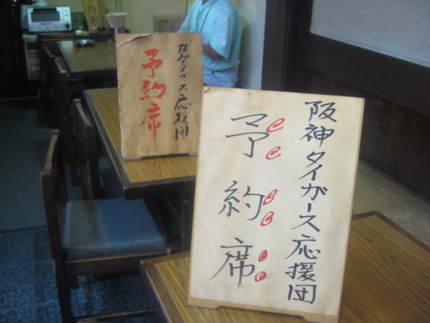 阪神タイガース応援団
予約席
阪神タイガース応援団
予約席